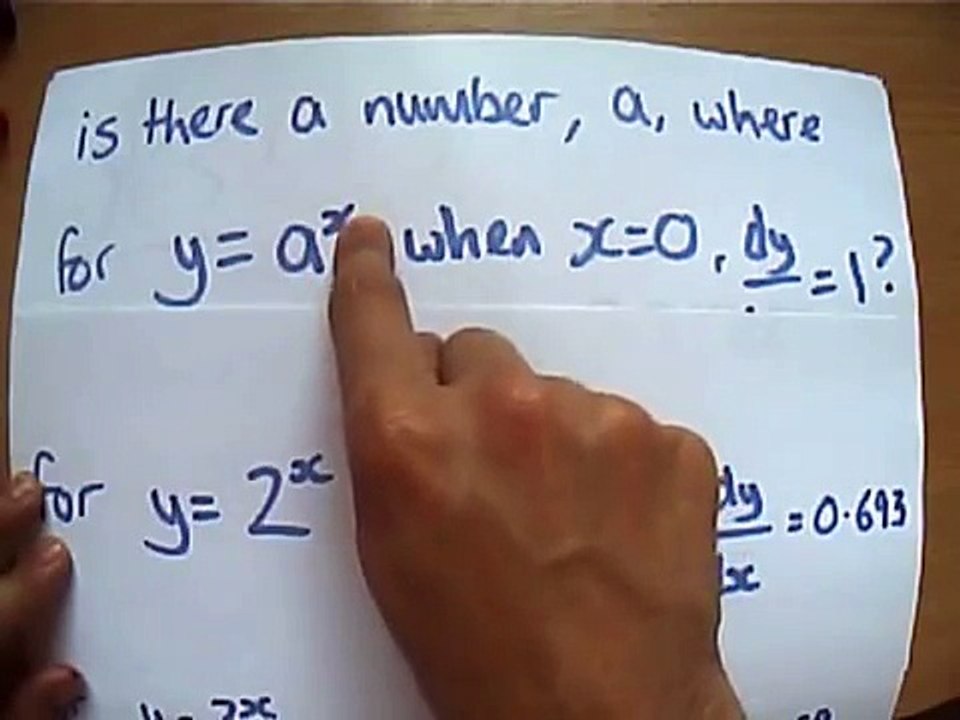 is there a number, a, where
for y = a^x when x=0, dy/ = 1?
for y = 2^x dy/dx = 0.693